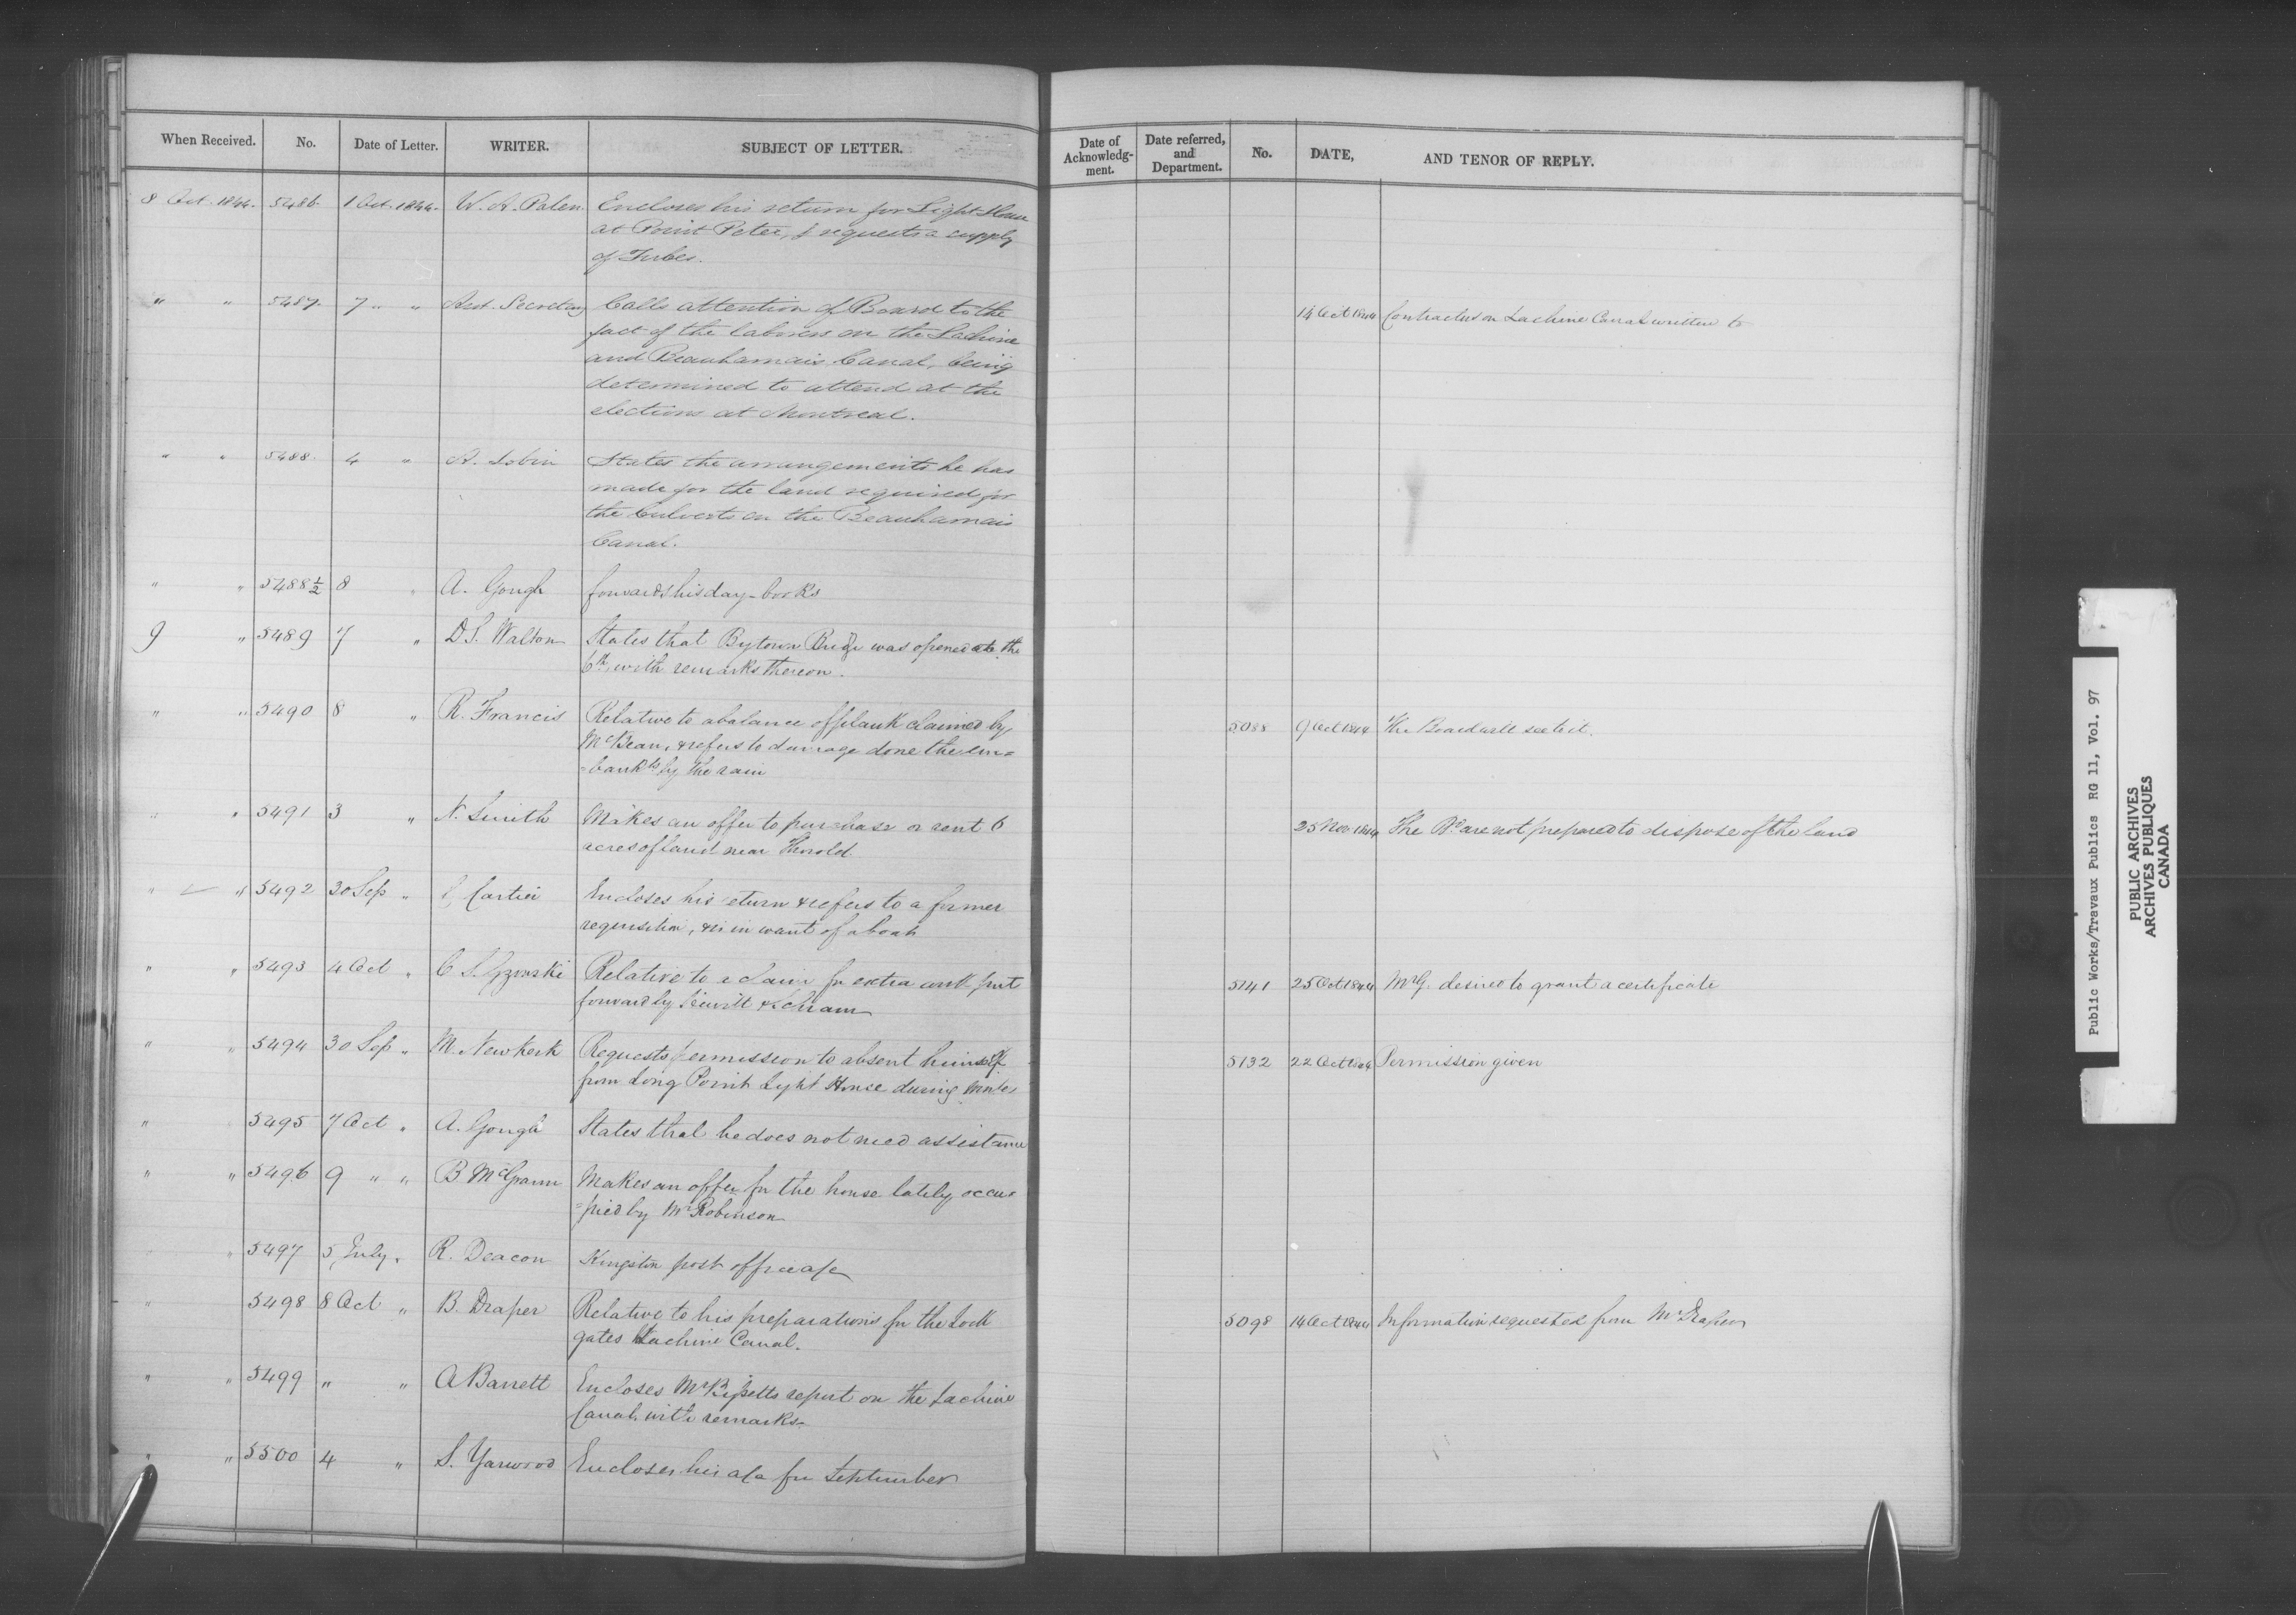 When Received. No. Date of Letter. WRITER. SUBJECT OF LETTER.
8 Oct. 1844. 5486. 1 Oct. 1844. W. A. Palen. Encloses his return for Light House
at Point Peter, & requests a supply
of Tubes.
" " 5487. 7 " " Asst. Secretary Calls attention of Board to the
fact of the laborers on the Lachine
and Beauharnais Canal, being
determined to attend at the
elections at Montreal.
" " 5488. 4 " A. Lobin States the arrangements he has
made for the land required for
the Culverts on the Beauharnais
Canal.
" " 5488½ 8 " A. Gough forwards his day-books
9 " 5489 7 " D.S. Walton States that Bytown Bridge was opened on the
6th, with remarks thereon.
" " 5490 8 " R. Francis Relative to a balance of plank claimed by
McBean, & refers to damage done the em=
=bankts by the rain
" " 5491 3 " N. Smith Makes an offer to purchase or rent 6
acres of land near Thorold
" " 5492 30 Sep " Cartier Encloses his return & refers to a former
requisition, & is in want of a boat
" " 5493 4 Oct " C. S. Gzowski Relative to a claim for extra work put
forward by
" " 5494 30 Sep " M. Newkerk Requests permission to absent himself
from Long Point Light House during winter
" 5495 7 Oct " A. Gough States that he does not need assistance
" " 5496 9 " " B McGrann Makes an offer for the house lately occu=
=pied by Mr Robinson
" " 5497 5 July " R. Deacon Kingston post office a/c
" 5498 8 Oct " B. Draper Relative to his preparations for the Lock
gates Lachine Canal.
" " 5499 " " A Barrett Encloses Mr report on the Lachine
Canal with remarks.
" " 5500 4 " S. Yarwood Encloses his a/c for September
Date of
Acknowledg-
ment.
Date referred,
and
Department.
No. DATE, AND TENOR OF REPLY.
14 Oct 1844 Contractors on Lachine Canal written to
5088 9 Oct 1844 The Board will see to it.
25 Nov. 1844 The Bd are not prepared to dispose of the land
5141 25 Oct 1844 Mr G. desired to grant a certificate
5132 22 Oct 1844 Permission given
5098 14 Oct 1844 Information requested from Mr Draper
Public Works/Travaux Publics RG 11, Vol. 97
PUBLIC ARCHIVES
ARCHIVES PUBLIQUES
CANADA